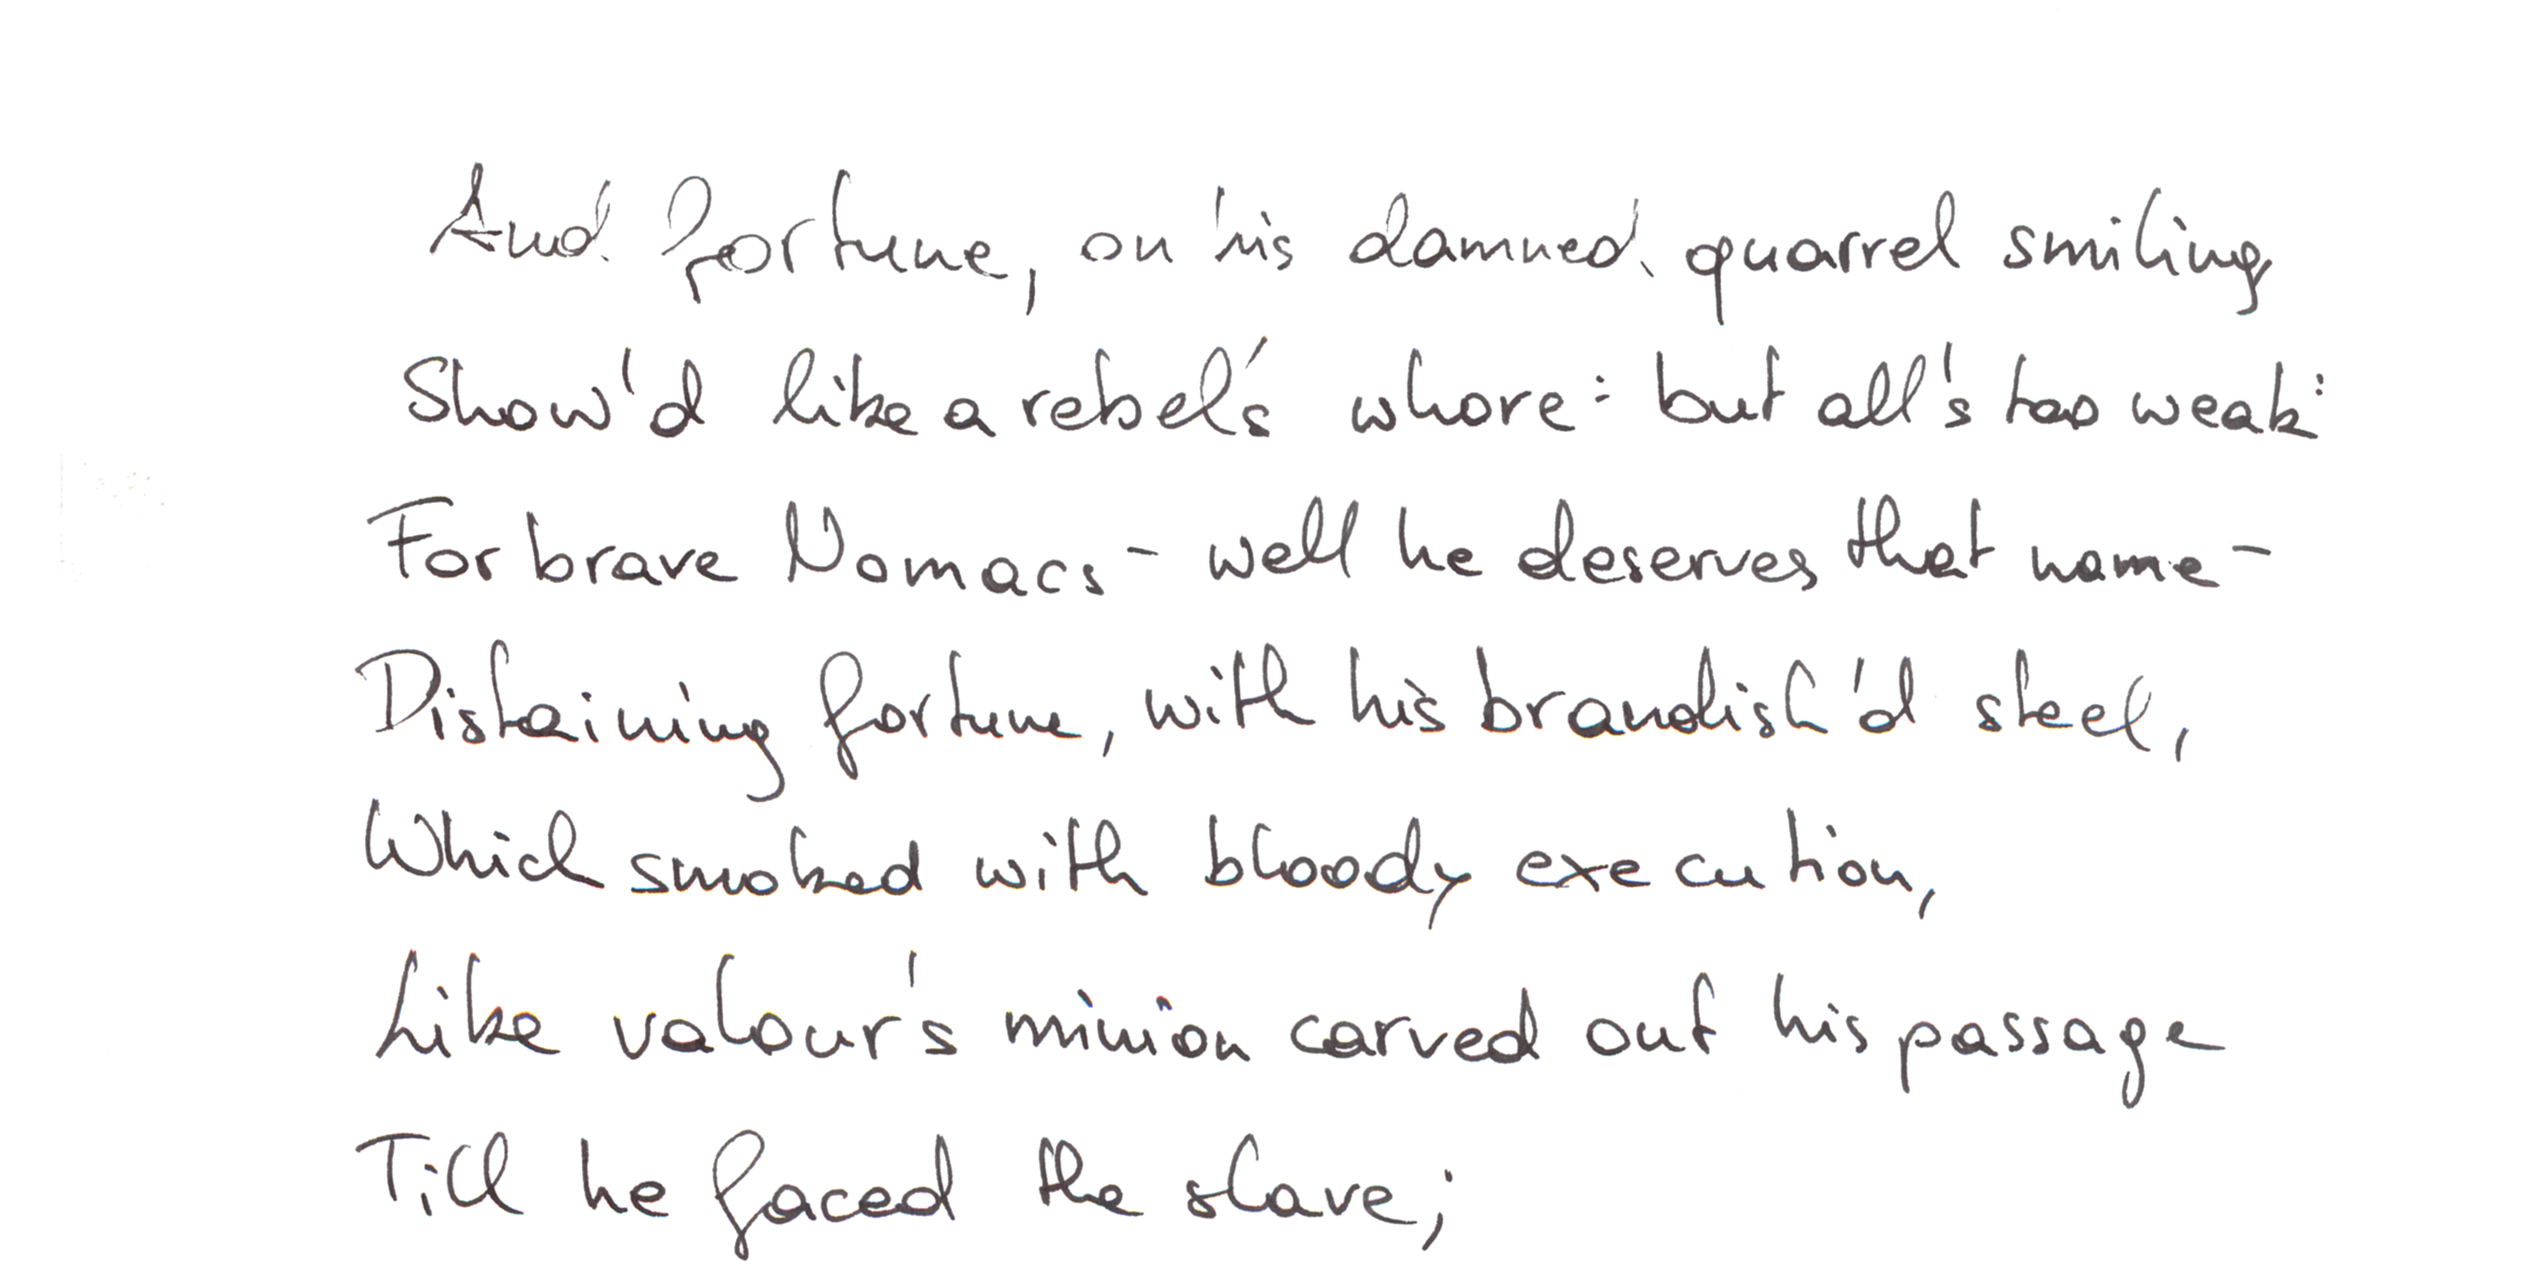 And fortune, on his damned quarrel smiling
Show'd like a rebel's whore: but all's too weak:
For brave Nomacs - well he deserves that name -
Distaining fortune, with his brandish'd steel,
Which smoked with bloody execution,
Like valour's minion carved out his passage
Till he faced the slave;